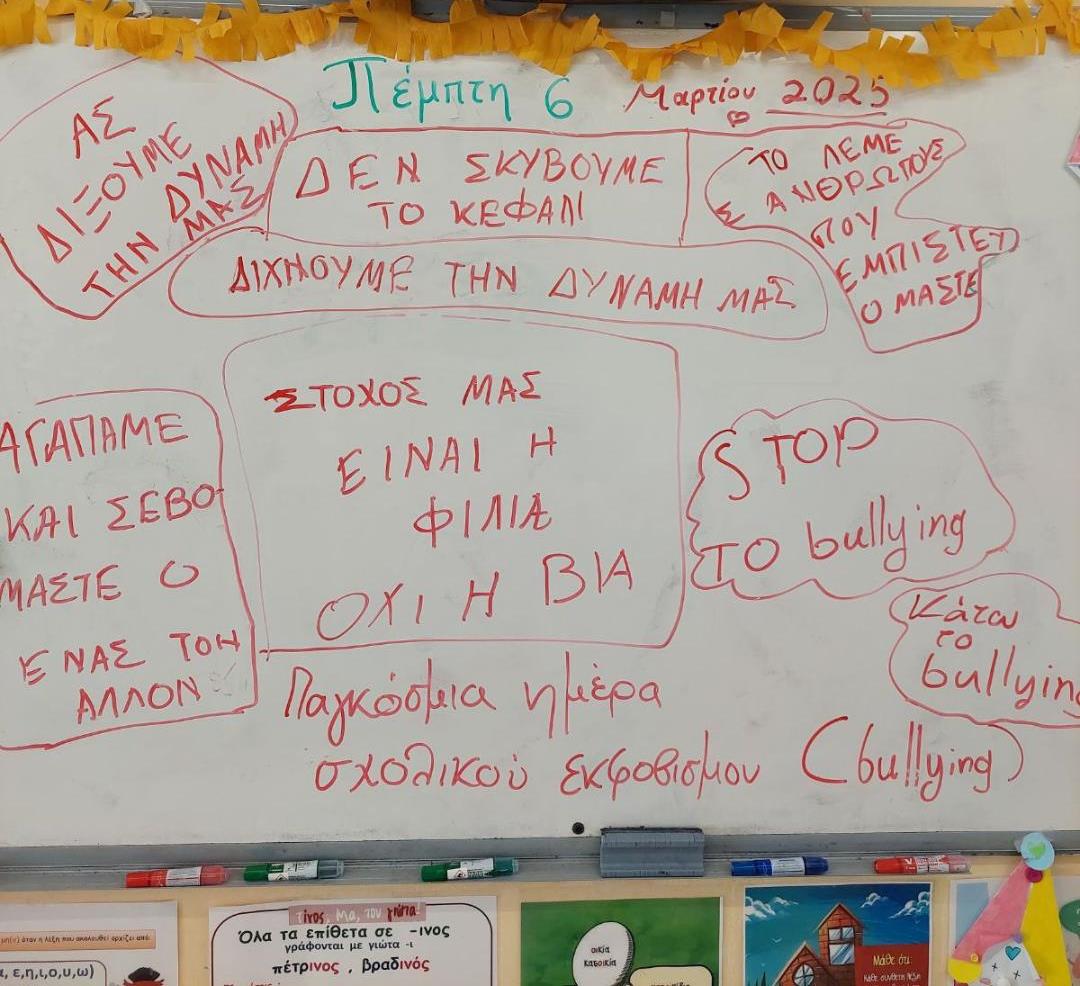 Πέμπτη 6 Μαρτίου 2025
ΑΣ
ΔΙΞΟΥΜΕ
ΤΗΝ ΔΥΝΑΜΗ
ΜΑΣ
ΔΕΝ ΣΚΥΒΟΥΜΕ
ΤΟ ΚΕΦΑΛΙ
ΤΟ ΛΕΜΕ
Σ ΑΝΘΡΩΠΟΥΣ
ΠΟΥ
ΕΜΠΙΣΤΕΥ
ΟΜΑΣΤΕ
ΔΙΧΝΟΥΜΕ ΤΗΝ ΔΥΝΑΜΗ ΜΑΣ
ΣΤΟΧΟΣ ΜΑΣ
ΕΙΝΑΙ Η
ΦΙΛΙΑ
ΟΧΙ Η ΒΙΑ
ΑΓΑΠΑΜΕ
ΚΑΙ ΣΕΒΟ
ΜΑΣΤΕ Ο
ΕΝΑΣ ΤΟΝ
ΑΛΛΟΝ
STOP
ΤΟ bullying
Κάτω
το
bullying
Παγκόσμια ημέρα
σχολικού εκφοβισμου (bullying)
μη(ν) όταν η λέξη που ακολουθεί αρχίζει από:
α, ε,η,ι,ο,υ,ω)
Όλα τα επίθετα σε -ινος
γράφονται με γιώτα -ι
πέτρινος , βραδινός
οικία
κατοικία
Μάθε ότι:
Κάθε σύνθετη λέξη